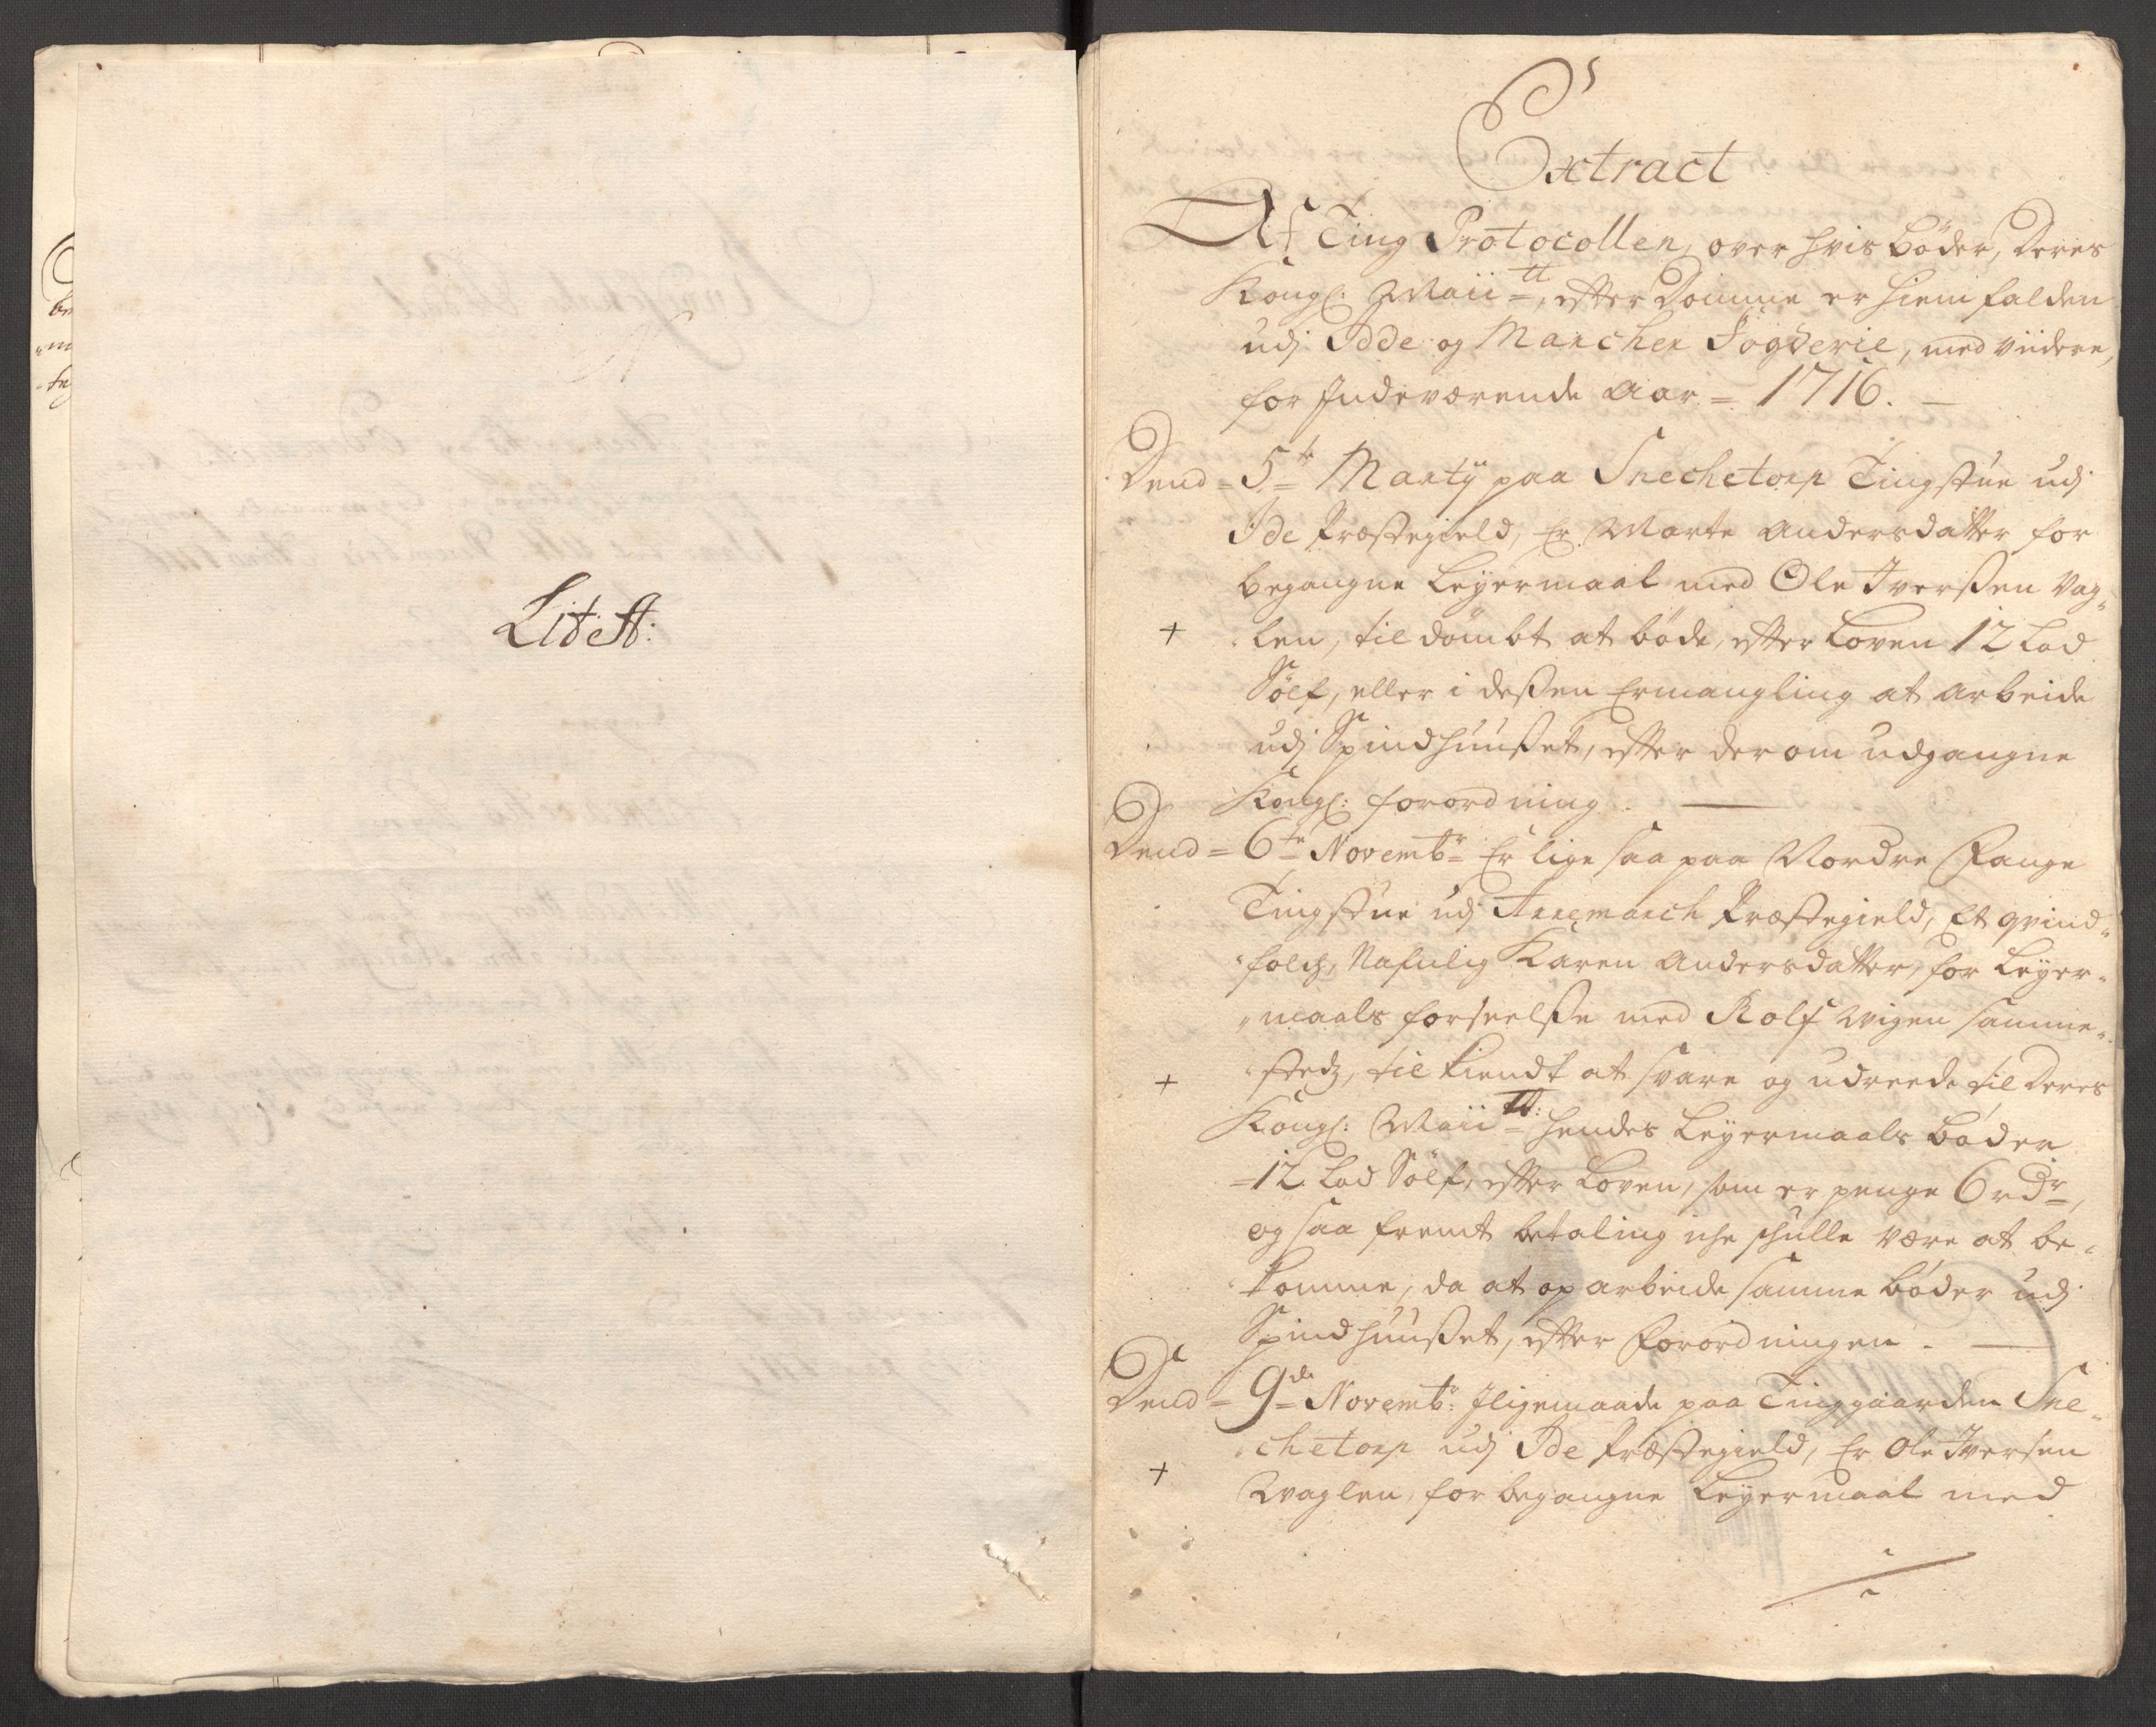 Lit. A:
Extract
Af Ting Protocollen, over hvis bøder, Deres
Kongl: Maii<sup>tt</sup>, efter Domme er hiemfalden
udj Idde og Marcher Fogderie, med viidere,
for Indeværende Aar = 1716. —
Dend = 5<sup>te</sup> Martij paa Snechetorp Tingstue udj
Ide Præstegield, Er Marte Andersdatter for
begangne Leyermaal med Ole Iverßen Vag„
„len, til dømbt at bøde, efter Loven 12 Lod
+
Sølf, eller i deßen Ermangling at arbeide
udj Spindhuußet, efter derom udgangne
Kongl: forordning. —
Dend = 6<sup>te</sup> Novembr Er lige saa paa Nordre Fange
Tingstue udj Arremarch Præstegield, Et qvind„
„folch, Nafnlig Karen Andersdatter, for Leyer„
„maals forseelße med Rolf Wigen samme„
„stedz, til kiendt at svare og udreede til Deres
+
Kongl: Maii<sup>tt</sup>: hendes Leyermaals bøder
= 12 Lod Sølf, efter Loven, som er penge 6 rdr,
og saa fremt betaling iche schulle være at be„
„komme, da at op arbeide samme bøder udj
Spindhuußet, efter Forordningen. —
Dend = 9<sup>de</sup> Novembr: Iligemaade paa Tinggaarden Sne„
„chetorp udj Ide Præstegield, Er Ole Iversen
+
Waglen, for begangne Leyermaal med